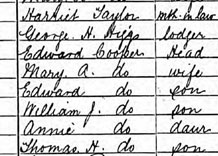 Harriet Taylor mth. in law
George H. Higgs lodger
Edward Cooper Head
Mary A. do wife
Edward do son
William J. do son
Annie do daur
Thomas H. do son